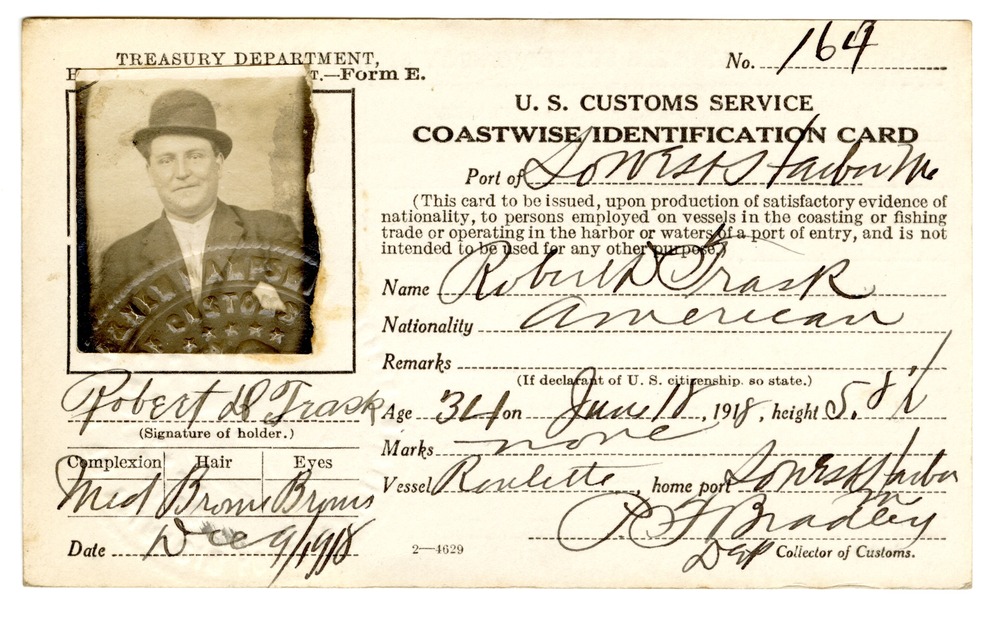 TREASURY DEPARTMENT,
T.—Form E.
No. 164
U. S. CUSTOMS SERVICE
COASTWISE IDENTIFICATION CARD
Port of So West Harbor Me
(This card to be issued, upon production of satisfactory evidence of
nationality, to persons employed on vessels in the coasting or fishing
trade or operating in the harbor or waters of a port of entry, and is not
intended to be used for any other purpose.)
Name Robert D Trask
Nationality American
Remarks
(If declarant of U. S. citizenship, so state.)
Age 34 on June 18, 1918, height 5. 8 1/2
Marks none
Vessel Roulette, home port So West Harbor
Me
P. F Bradley
Dep Collector of Customs.
CUSTOMS
Robert D Trask
(Signature of holder.)
Complexion Hair Eyes
Med Brown Brown
Date Dec 9/1918
2—4629